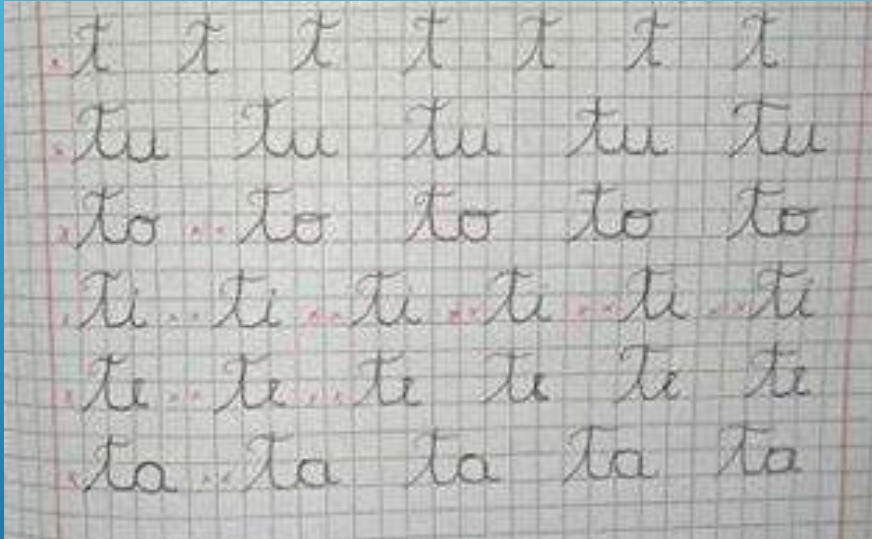 t t t t t t t
tu tu tu tu tu
to to to to to
ti ti ti ti ti ti
te te te te te te
ta ta ta ta ta